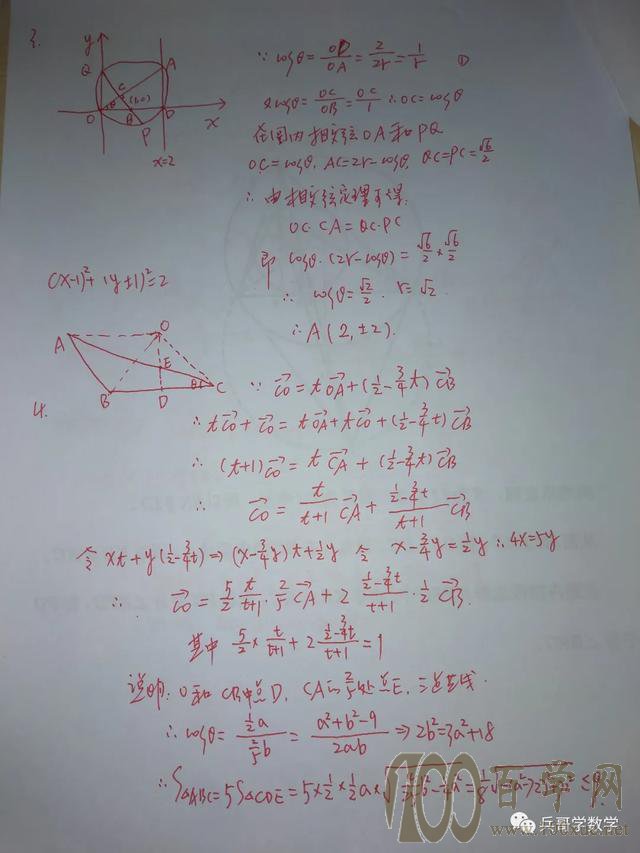 3.
y
Q
A
C
θ
(1,0)
O
B
D
x
P
x=2
∵ cosθ = OD/OA = 2/2r = 1/r ①
cosθ = OC/OB = OC/1 ∴ OC = cosθ
在圆内相交弦OA和PQ
OC = cosθ, AC = 2r-cosθ, QC = PC = √6/2
∴ 由相交弦定理可得:
OC·CA = QC·PC
即 cosθ·(2r-cosθ) = √6/2 × √6/2
∴ cosθ = √2/2 · r = √2 .
∴ A(2, ±2).
(x-1)²+(y±1)²=2
A
O
E
B
D
θ
C
4.
∵ CO = tOA + (1/2 - 3/4 t) CB
∴ tCO + CO = tOA + tCO + (1/2 - 3/4 t) CB
∴ (t+1)CO = tCA + (1/2 - 3/4 t) CB
∴ CO = t/(t+1) CA + (1/2 - 3/4 t)/(t+1) CB
令 xt + y(1/2 - 3/4 t) ⇒ (x - 3/4 y)t + 1/2 y 令 x - 3/4 y = 1/2 y ∴ 4x = 5y
∴ CO = 5/2 t/(t+1) · 2/5 CA + 2 (1/2 - 3/4 t)/(t+1) · 1/2 CB.
其中 5/2 × t/(t+1) + 2 (1/2 - 3/4 t)/(t+1) = 1
说明: O和CB中点D, CA的2/5处点E, 三点共线.
∴ cosθ = (1/2 a)/(2/5 b) = (a²+b²-9)/2ab ⇒ 2b² = 3a²+18
∴ S△ABC = 5S△CDE = 5 × 1/2 × 1/2 a ×
100百学网
兵哥学数学